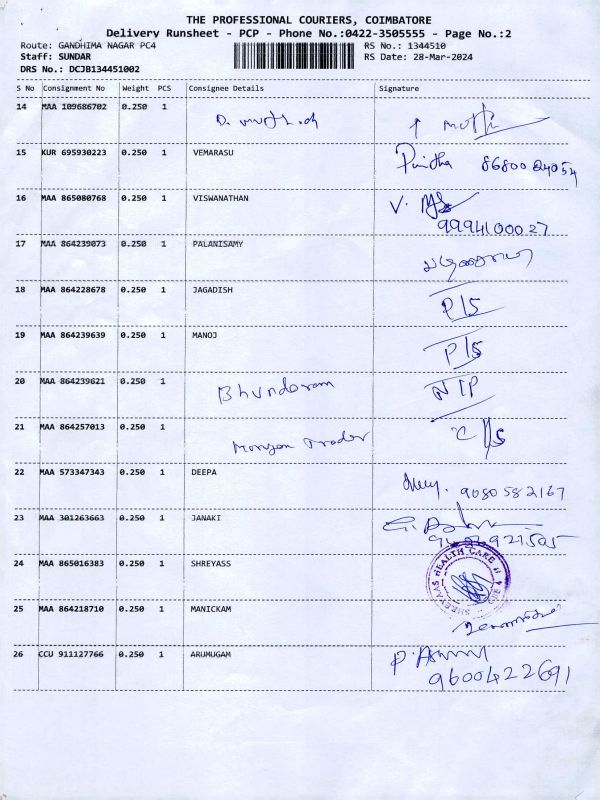 THE PROFESSIONAL COURIERS, COIMBATORE
Delivery Runsheet - PCP - Phone No.:0422-3505555 - Page No.:2
Route: GANDHIMA NAGAR PC4 RS No.: 1344510
Staff: SUNDAR RS Date: 28-Mar-2024
DRS No.: DCJB134451002
S No Consignment No Weight PCS Consignee Details Signature
14 MAA 109686702 0.250 1
15 KUR 695930223 0.250 1 VEMARASU Punitha
16 MAA 865080768 0.250 1 VISWANATHAN V.
9994100027
17 MAA 864239073 0.250 1 PALANISAMY
18 MAA 864228678 0.250 1 JAGADISH P/S
19 MAA 864239639 0.250 1 MANOJ P/S
20 MAA 864239621 0.250 1 Bhundaram NTP
21 MAA 864257013 0.250 1 C/S
22 MAA 573347343 0.250 1 DEEPA 9080582167
23 MAA 301263663 0.250 1 JANAKI
24 MAA 865016383 0.250 1 SHREYASS SHREYAAS HEALTH CARE
25 MAA 864218710 0.250 1 MANICKAM
26 CCU 911127766 0.250 1 ARUMUGAM P.
9600422691